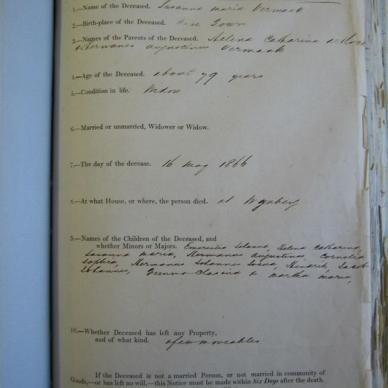 1.—Name of the Deceased. Susanna Maria Vermaak
2.—Birth-place of the Deceased. Town
3.—Names of the Parents of the Deceased. Helena Catharina
Hermanus Augustinus Vermaak
4.—Age of the Deceased. about 79 years
5.—Condition in life. Widow
6.—Married or unmarried, Widower or Widow.
7.—The day of the decease. 16 May 1866
8.—At what House, or where, the person died. at
9.—Names of the Children of the Deceased, and
whether Minors or Majors. Helena Catharina,
Susanna Maria, Hermanus Augustinus, Cornelia
Sophia, Hermanus Johannes Hendrik, Jacob
Johannes, & Martha Maria,
10.—Whether Deceased has left any Property,
and of what kind. a few moveables
If the Deceased is not a married Person, or not married in community of
Goods,—or has left no will,—this Notice must be made within Six Days after the death